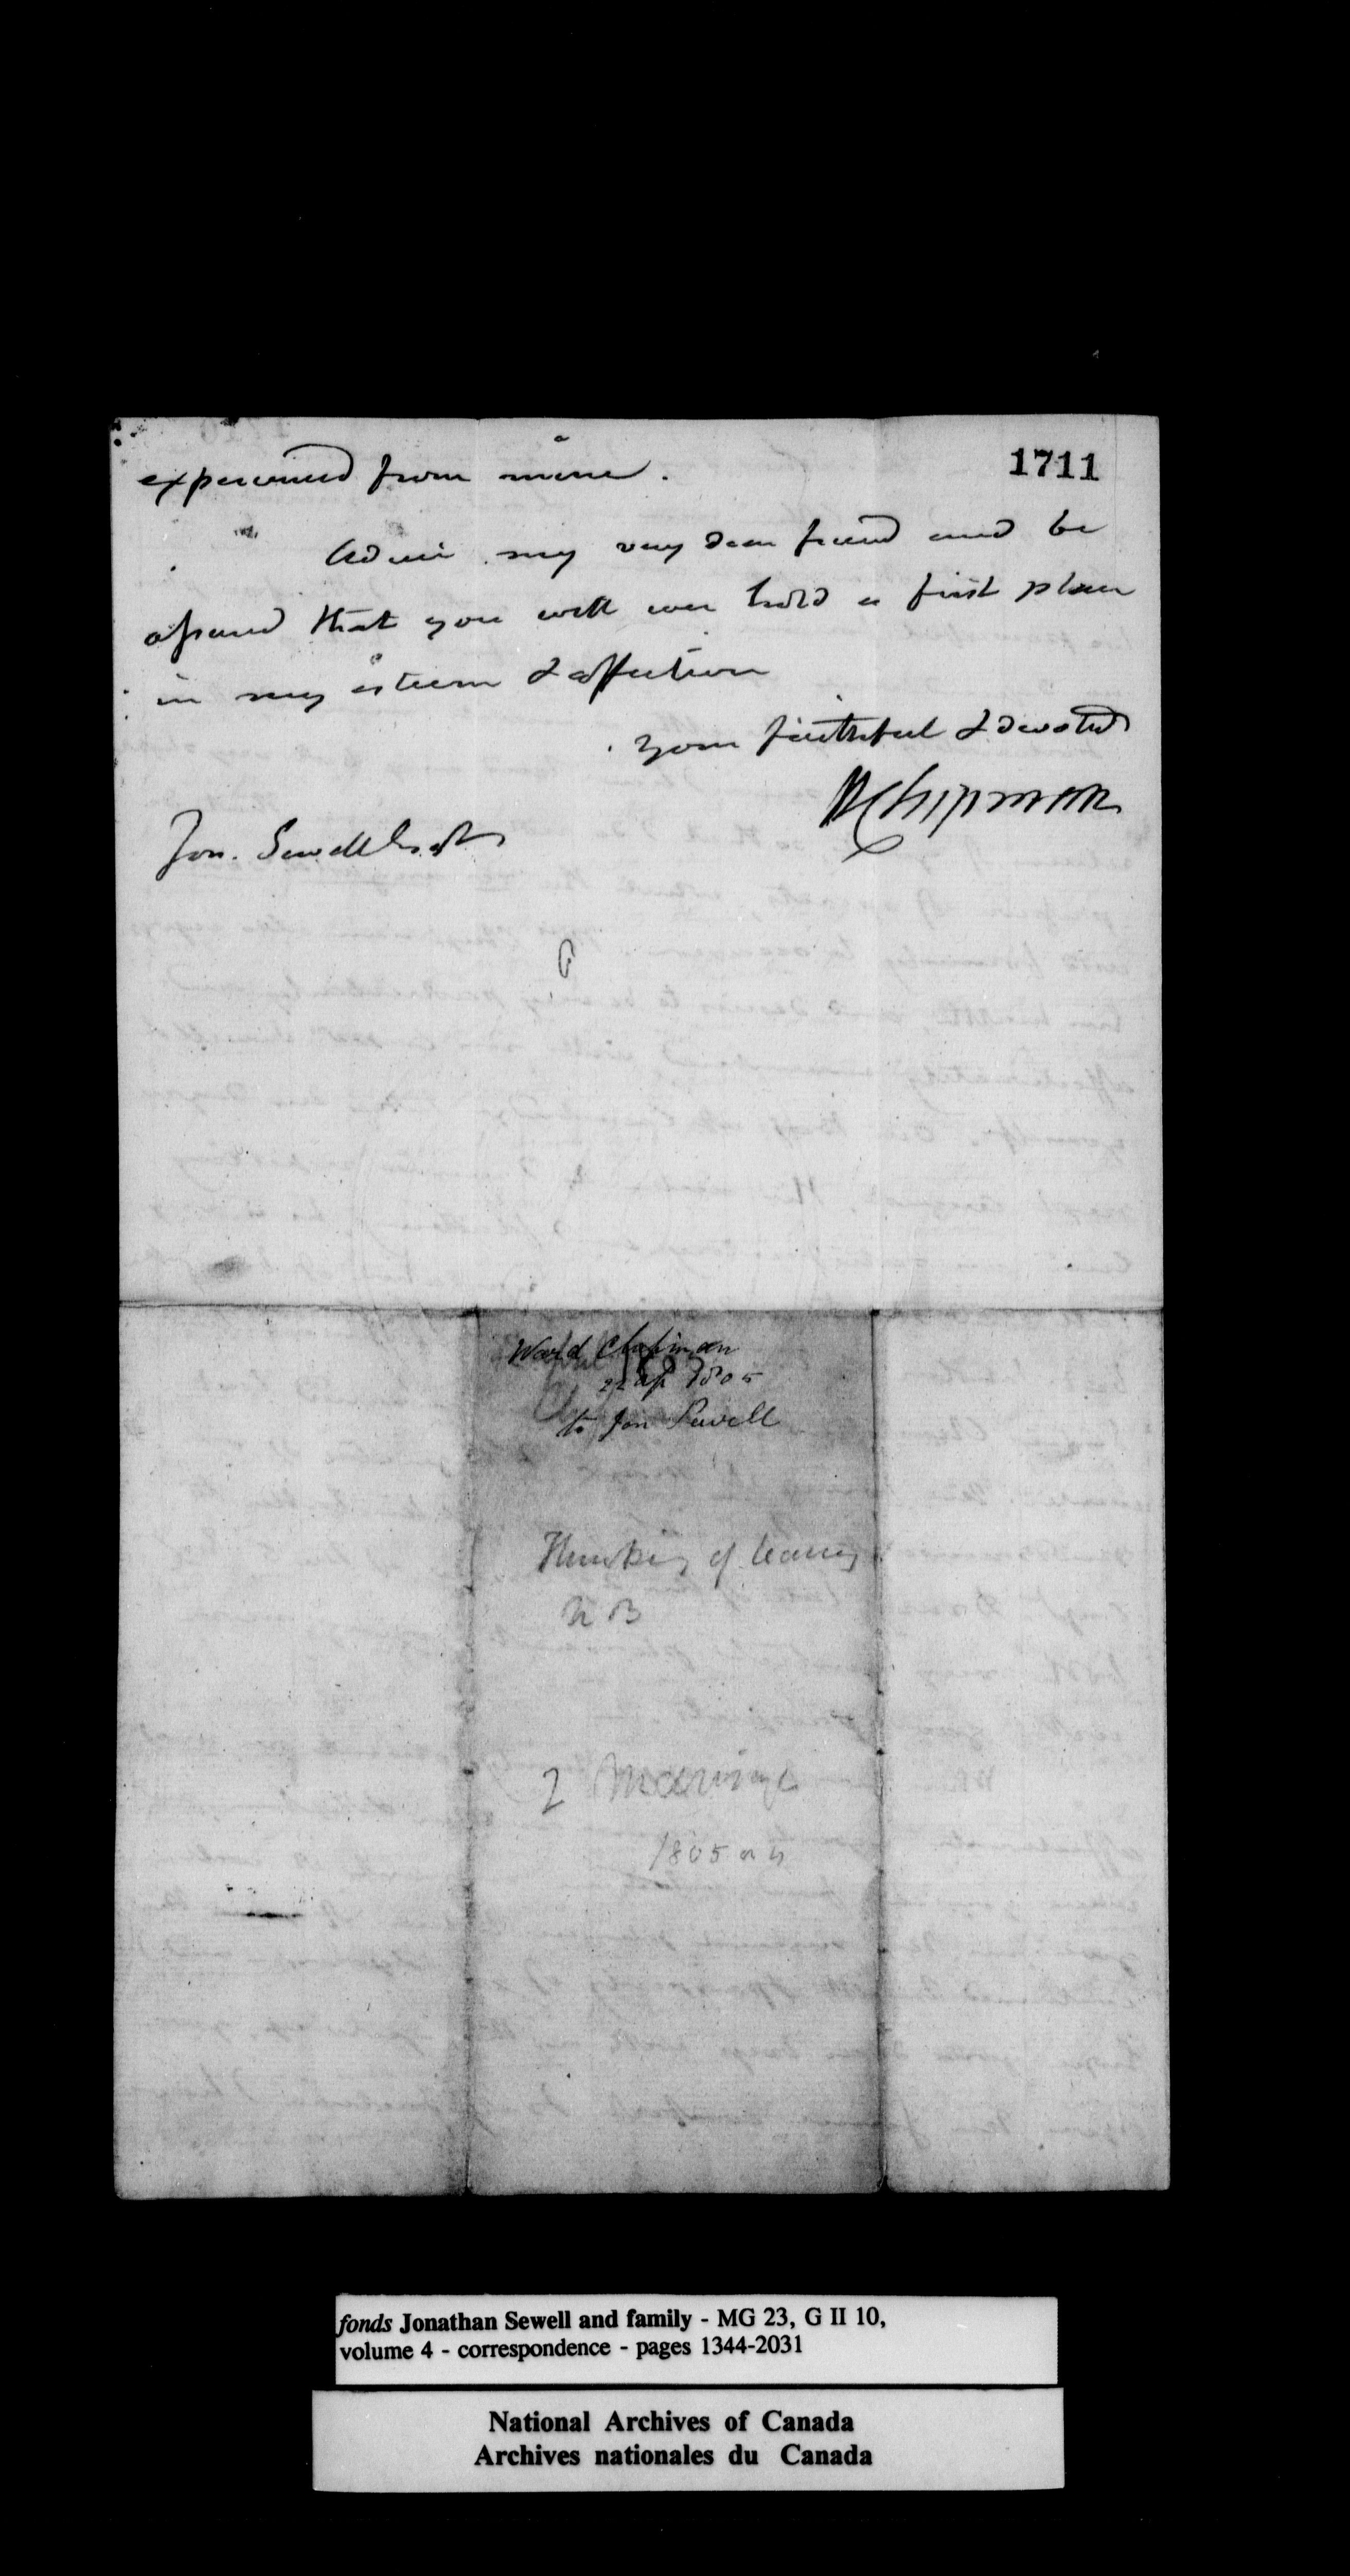 1711
experienced from mine.
Adieu my very dear friend and be
assured that you will ever hold a first place
in my esteem & affection
your faithful & devoted
WChipman
Jon. Sewell Esqr
Ward Chipman
22 Ap 1805
to Jon Sewell
Thinking of leaving
N B
2 Marriage
1805
fonds Jonathan Sewell and family - MG 23, G II 10,
volume 4 - correspondence - pages 1344-2031
National Archives of Canada
Archives nationales du Canada